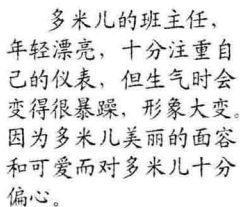 多米儿的班主任，
年轻漂亮，十分注重自
己的仪表，但生气时会
变得很暴躁，形象大变。
因为多米儿美丽的面容
和可爱而对多米儿十分
偏心。